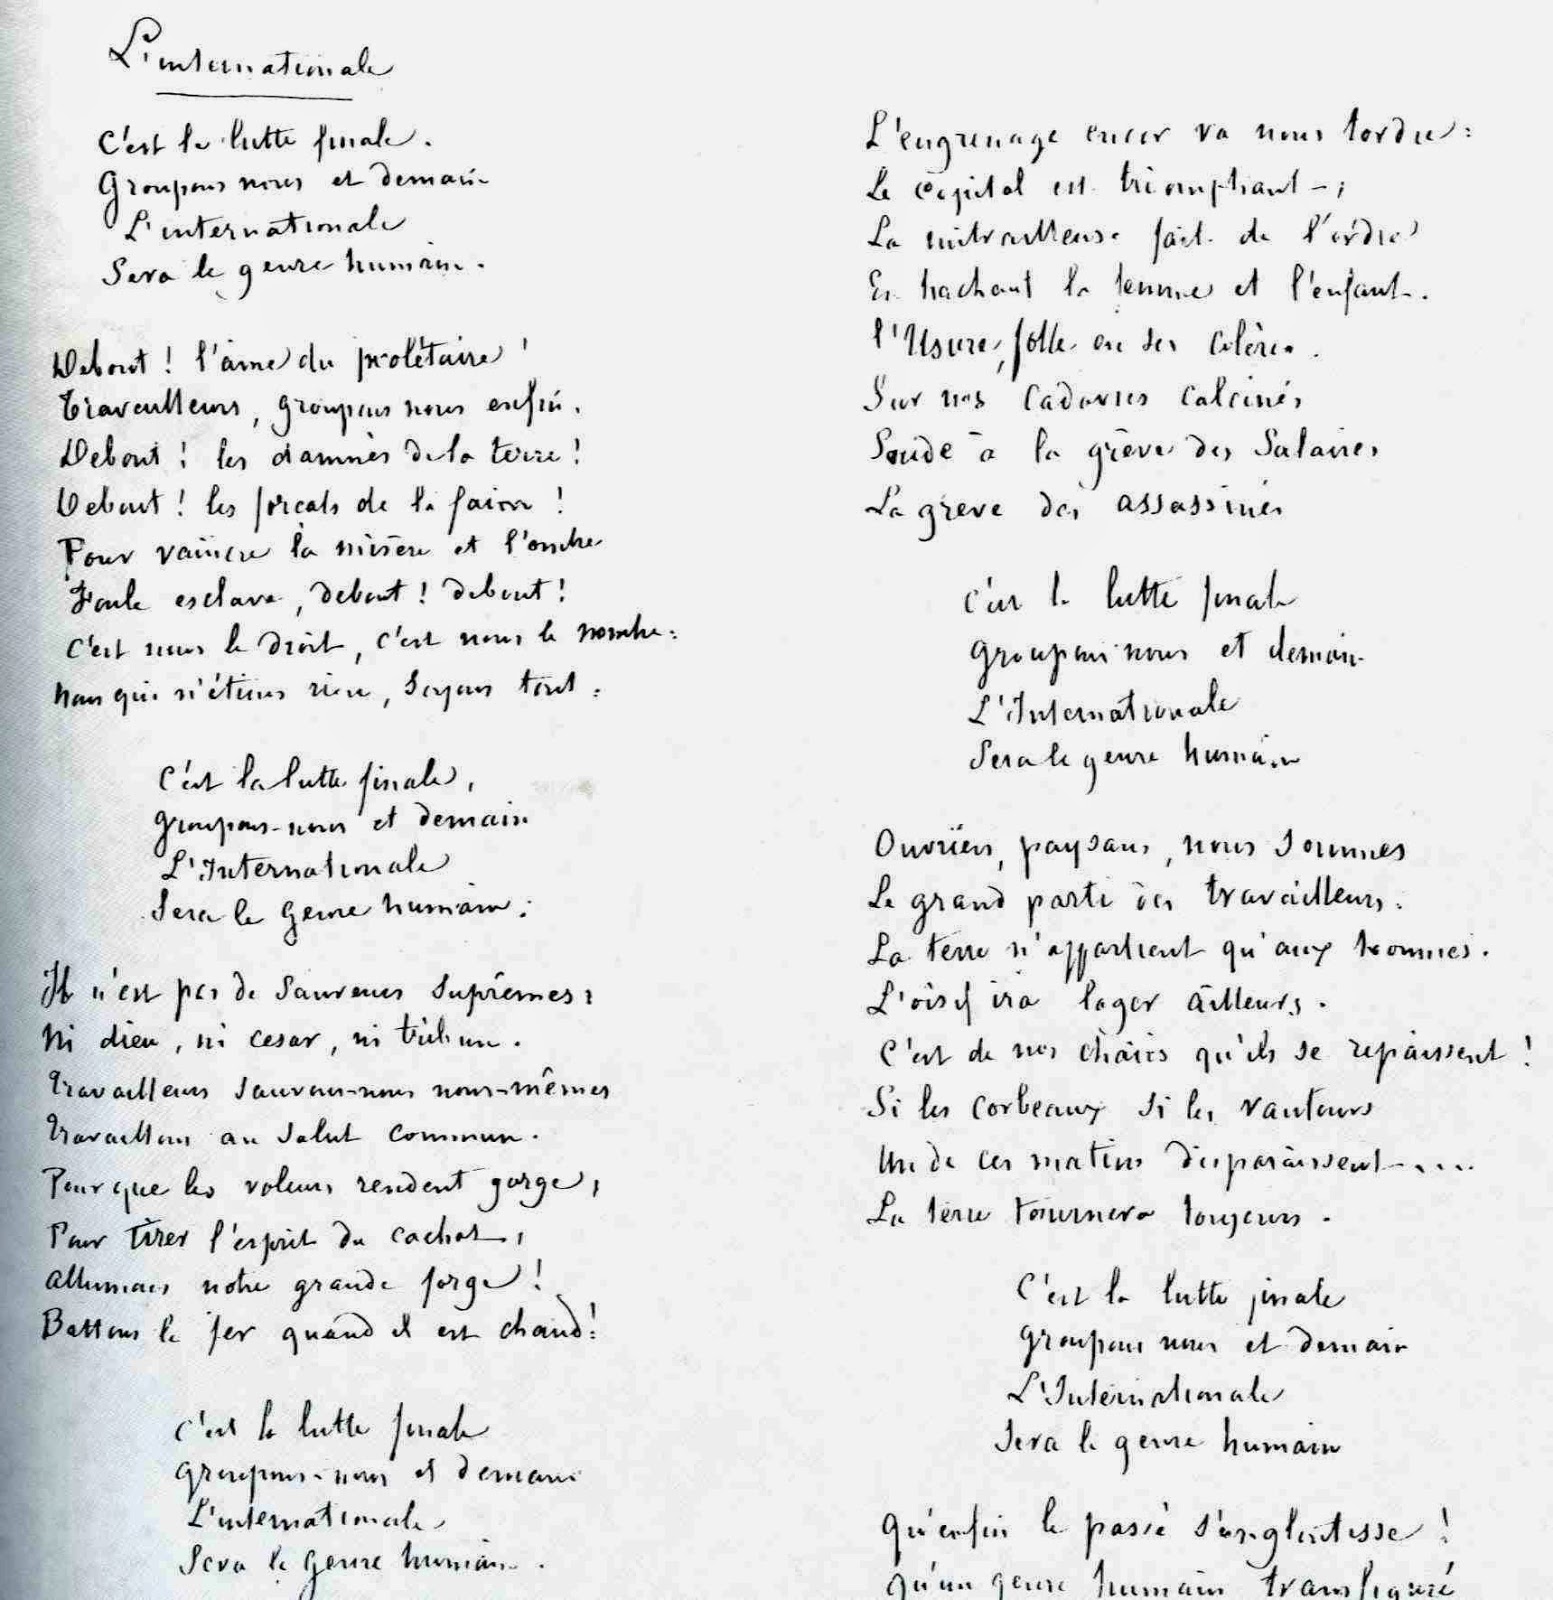 L'internationale
C'est la lutte finale.
Groupons nous et demain
L'internationale
Sera le genre humain.
Debout ! l'âme du prolétaire !
Travailleurs, groupons nous enfin.
Debout ! les damnés de la terre !
Debout ! les forçats de la faim !
Pour vaincre la misère et l'ombre
Foule esclave, debout ! debout !
C'est nous le droit, c'est nous le nombre :
Nous qui n'étions rien, soyons tout :
C'est la lutte finale,
Groupons-nous et demain
L'Internationale
Sera le genre humain.
Il n'est pas de sauveurs suprêmes :
Ni dieu, ni cesar, ni tribun.
Travailleurs sauvons-nous nous-mêmes
Travaillons au salut commun.
Pour que les voleurs rendent gorge,
Pour tirer l'esprit du cachot,
Allumons notre grande forge !
Battons le fer quand il est chaud !
C'est la lutte finale
Groupons-nous et demain
L'internationale
Sera le genre humain.
L'engrenage encor va nous tordre :
Le capital est triomphant ;
La mitrailleuse fait de l'ordre
En hachant la femme et l'enfant.
L'Usure, folle en ses colères
Sur nos cadavres calcinés
Soude à la grève des Salaires
La grève des assassinés
C'est la lutte finale
Groupons nous et demain
L'Internationale
Sera le genre humain
Ouvriers, paysans, nous sommes
Le grand parti des travailleurs.
La terre n'appartient qu'aux hommes.
L'oisif ira loger ailleurs.
C'est de nos chairs qu'ils se repaissent !
Si les corbeaux si les vautours
Un de ces matins disparaissent....
La terre tournera toujours.
C'est la lutte finale
Groupons nous et demain
L'Internationale
Sera le genre humain
Qu'enfin le passé s'engloutisse !
Qu'un genre humain transfiguré